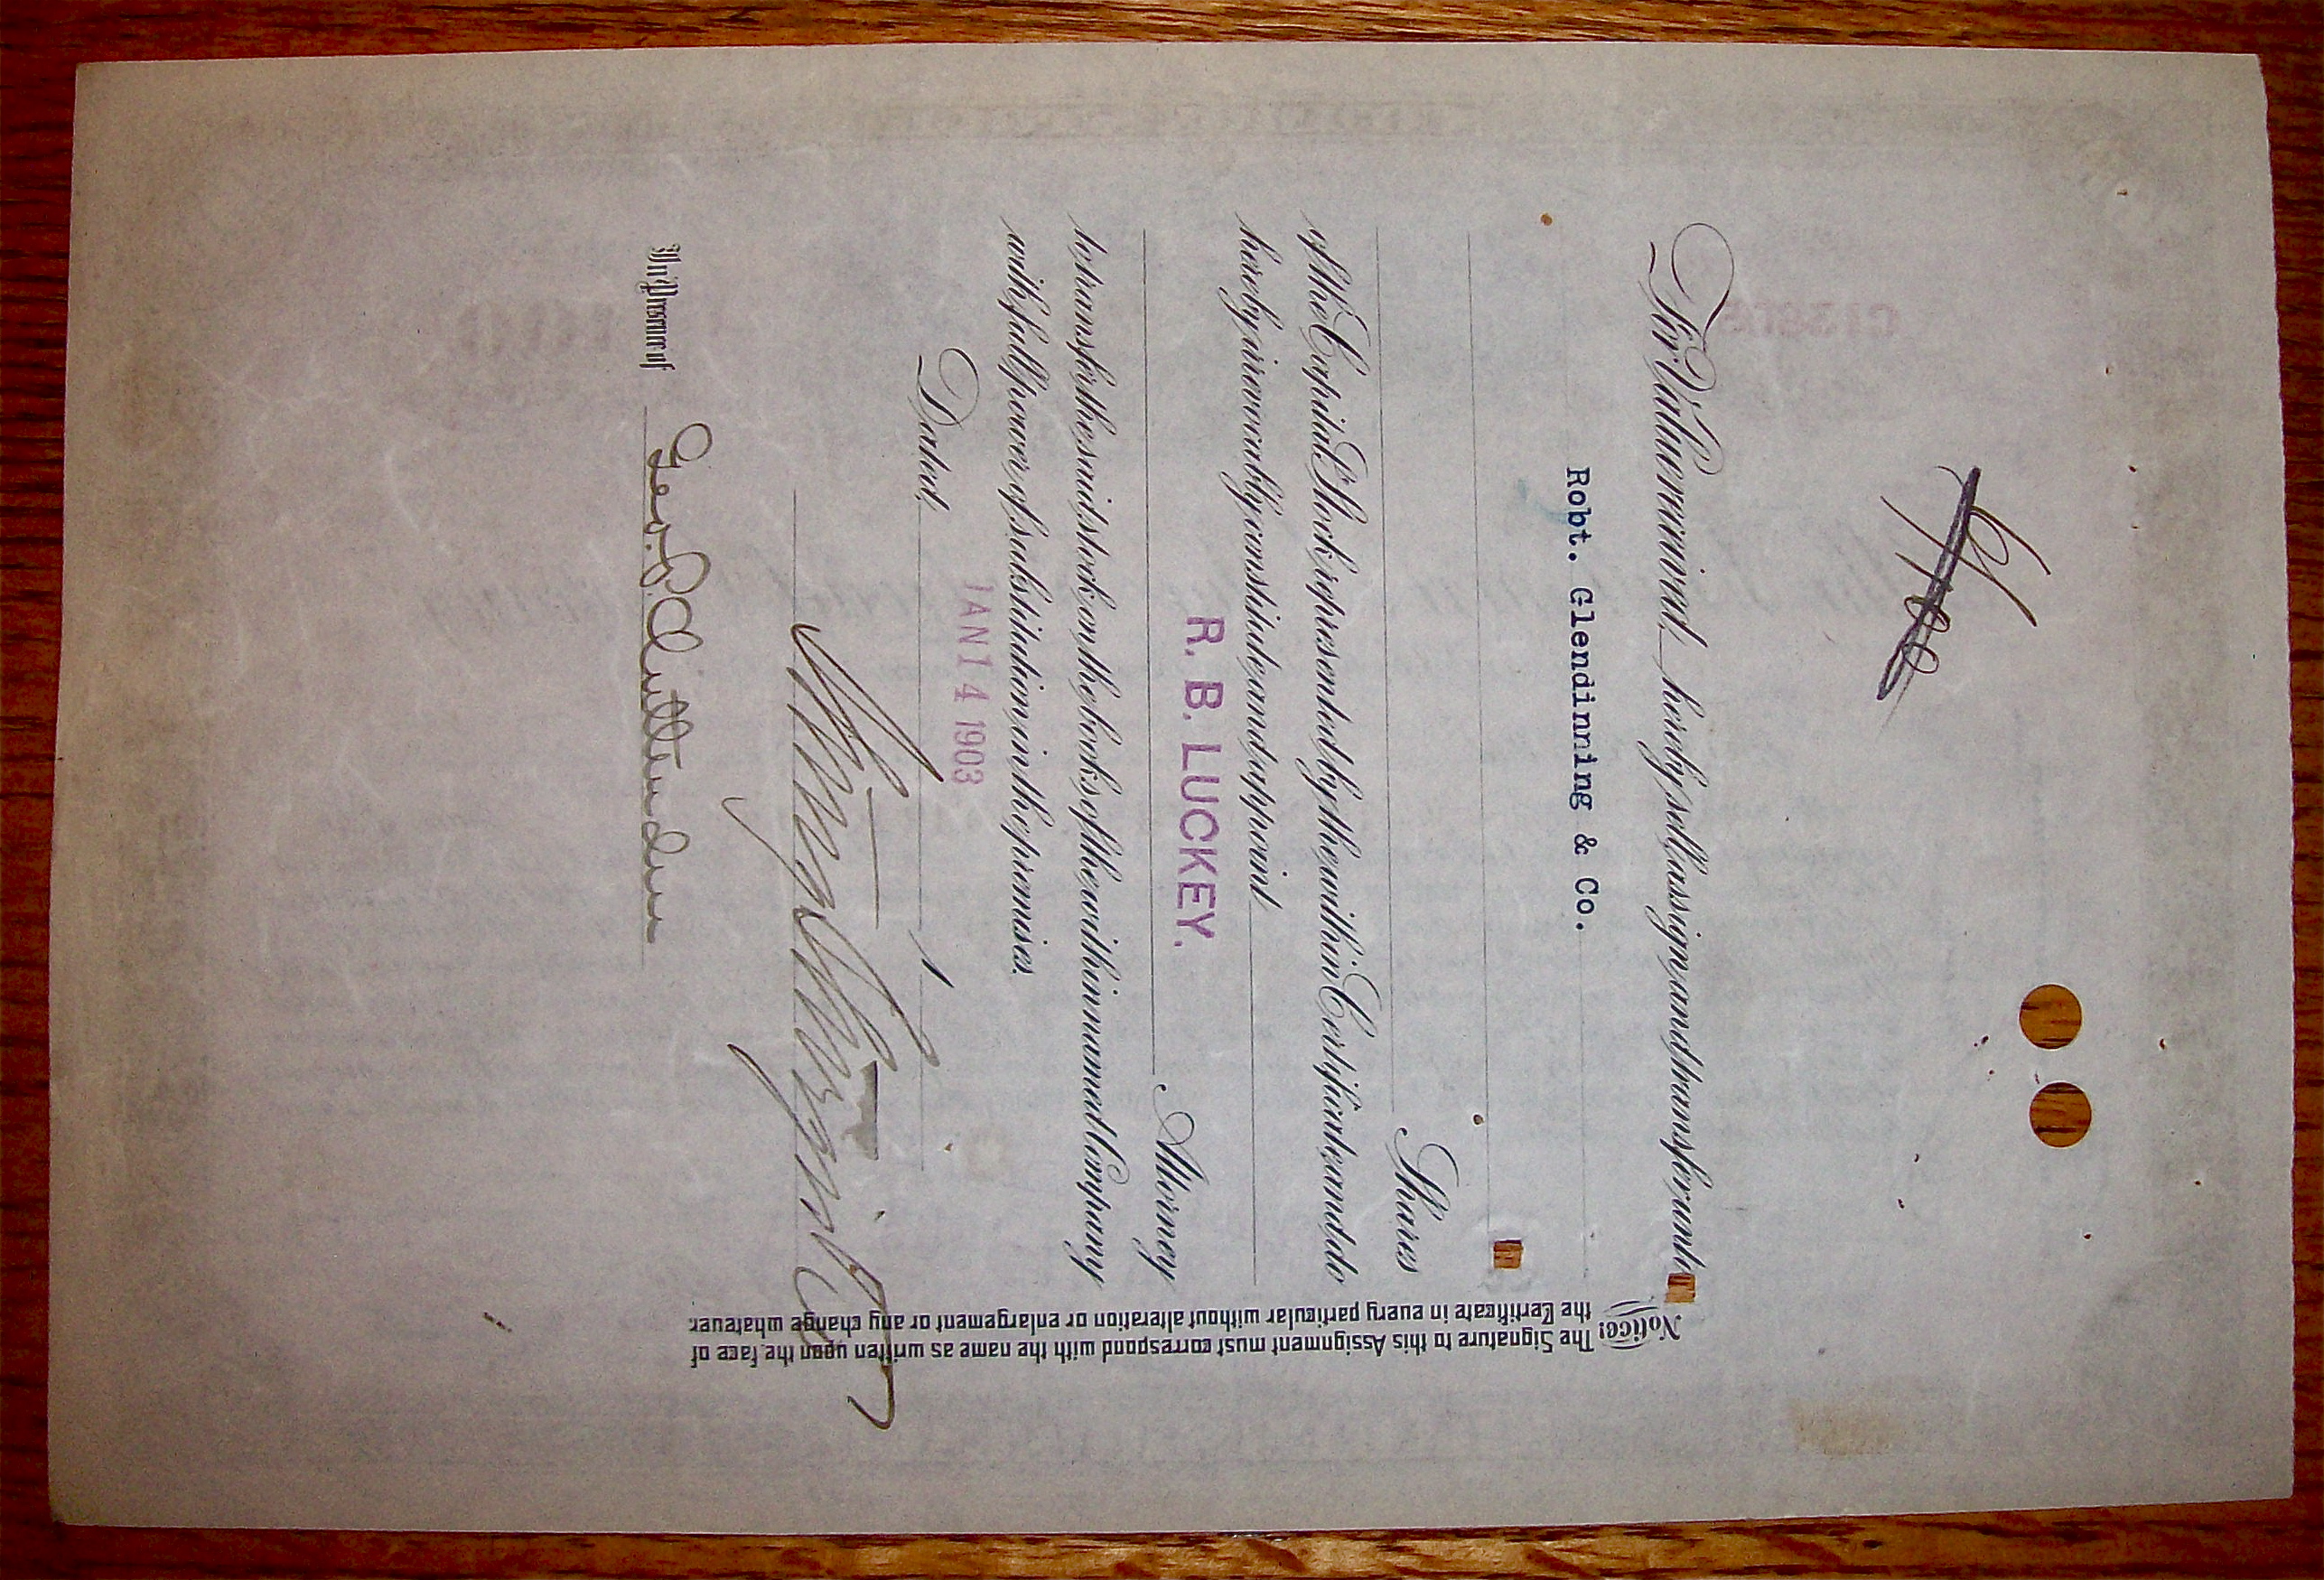 For Value received hereby sell assign and transfer unto
Robt. Glendinning & Co.
Shares
of the Capital Stock represented by the within Certificate and do
hereby irrevocably constitute and appoint
R. B. LUCKEY.
Attorney
to transfer the said stock on the books of the within named Company
with full power of substitution in the premises.
Dated JAN 14 1903 1
In Presence of
Geo. P. Chittenden
Notice! The Signature to this Assignment must correspond with the name as written upon the face of
the Certificate in every particular without alteration or enlargement or any change whatever.